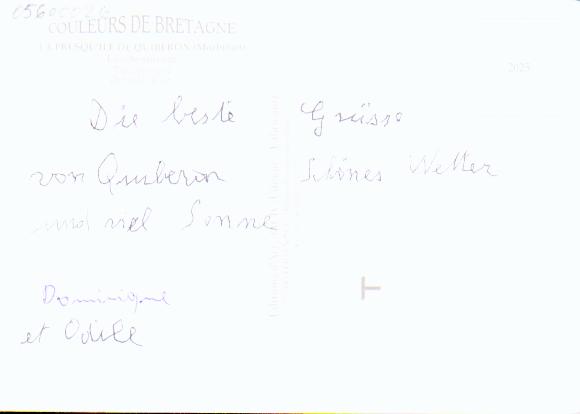 COULEURS DE BRETAGNE
LA PRESQU'ILE DE QUIBERON (Morbihan)
2025
Die beste Grüsse
von Quiberon Schönes Wetter
und viel Sonne
Dominique
et Odile
T